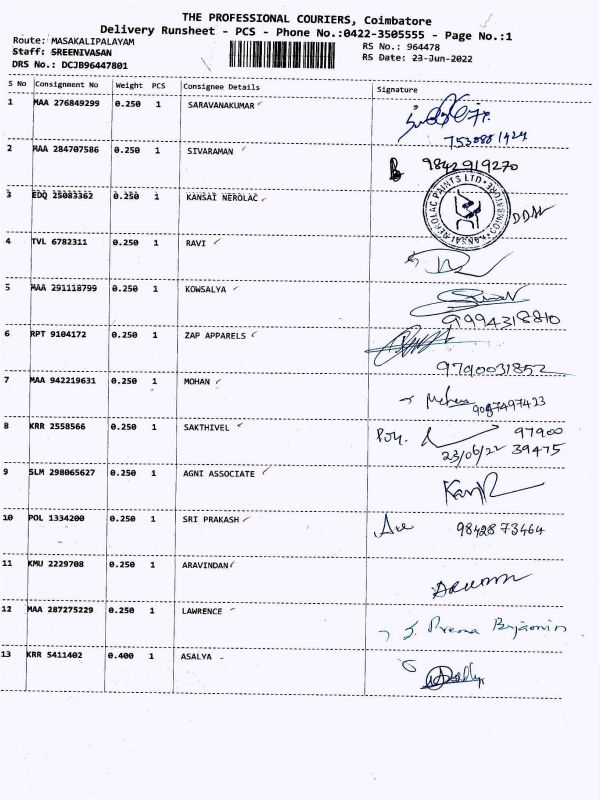 THE PROFESSIONAL COURIERS, Coimbatore
Delivery Runsheet - PCS - Phone No.:0422-3505555 - Page No.:1
Route: MASAKALIPALAYAM
RS No.: 964478
Staff: SREENIVASAN
RS Date: 23-Jun-2022
DRS No.: DCJB96447801
S No Consignment No Weight PCS Consignee Details Signature
1 MAA 276849299 0.250 1 SARAVANAKUMAR
2 MAA 284707586 0.250 1 SIVARAMAN 9842919270
3 EDQ 25083362 0.250 1 KANSAI NEROLAC
KANSAI NEROLAC PAINTS LTD. COIMBATORE
4 TVL 6782311 0.250 1 RAVI
5 MAA 291118799 0.250 1 KOWSALYA
9994318810
6 RPT 9104172 0.250 1 ZAP APPARELS
9790031852
7 MAA 942219631 0.250 1 MOHAN
9087497423
8 KRR 2558566 0.250 1 SAKTHIVEL 97900
23/06/22 39475
9 SLM 298065627 0.250 1 AGNI ASSOCIATE
10 POL 1334200 0.250 1 SRI PRAKASH 9842873464
11 KMU 2229708 0.250 1 ARAVINDAN
12 MAA 287275229 0.250 1 LAWRENCE
13 KRR 5411402 0.400 1 ASALYA